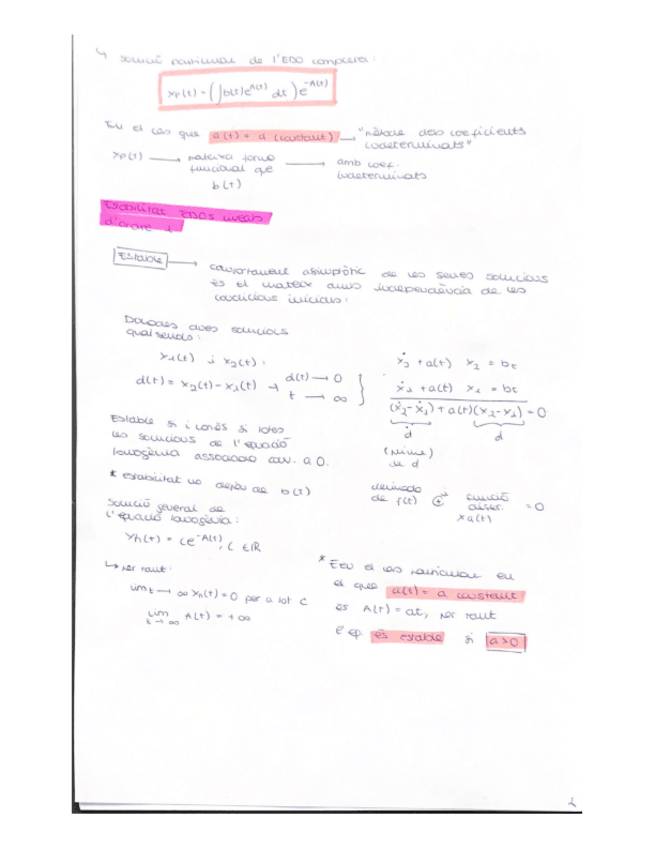 ↳ solució particular de l'EDO completa:
xp(t) = (∫b(t)e^A(t) dt) e^-A(t)
En el cas que a(t) = a (constant) → "mètode dels coeficients
indeterminats"
xp(t) → mateixa forma → amb coef.
funcional que indeterminats
b(t)
Estabilitat EDOs lineals
d'ordre 1
Estable → comportament asimptòtic de les seves solucions
és el mateix amb independència de les
condicions inicials:
Donades dues solucions
qualsevols:
x1(t) i x2(t):
d(t) = x2(t) - x1(t) → d(t) → 0
t → ∞
ẋ2 + a(t) x2 = bt
ẋ1 + a(t) x1 = bt
(ẋ2 - ẋ1) + a(t)(x2 - x1) = 0
ḋ d
(prima)
de d
Estable si i només si totes
les solucions de l'equació
homogènia associada conv. a 0.
* estabilitat no depèn de b(t)
derivada
de f(t) + funció = 0
xa(t)
Solució general de
l'equació homogènia:
xh(t) = ce^-A(t), c ∈ IR
↳ per tant:
lim t → ∞ xh(t) = 0 per a tot c
lim t → ∞ A(t) = + ∞
* En el cas particular en
el que a(t) = a constant
és A(t) = at, per tant
l'eq és estable si a > 0